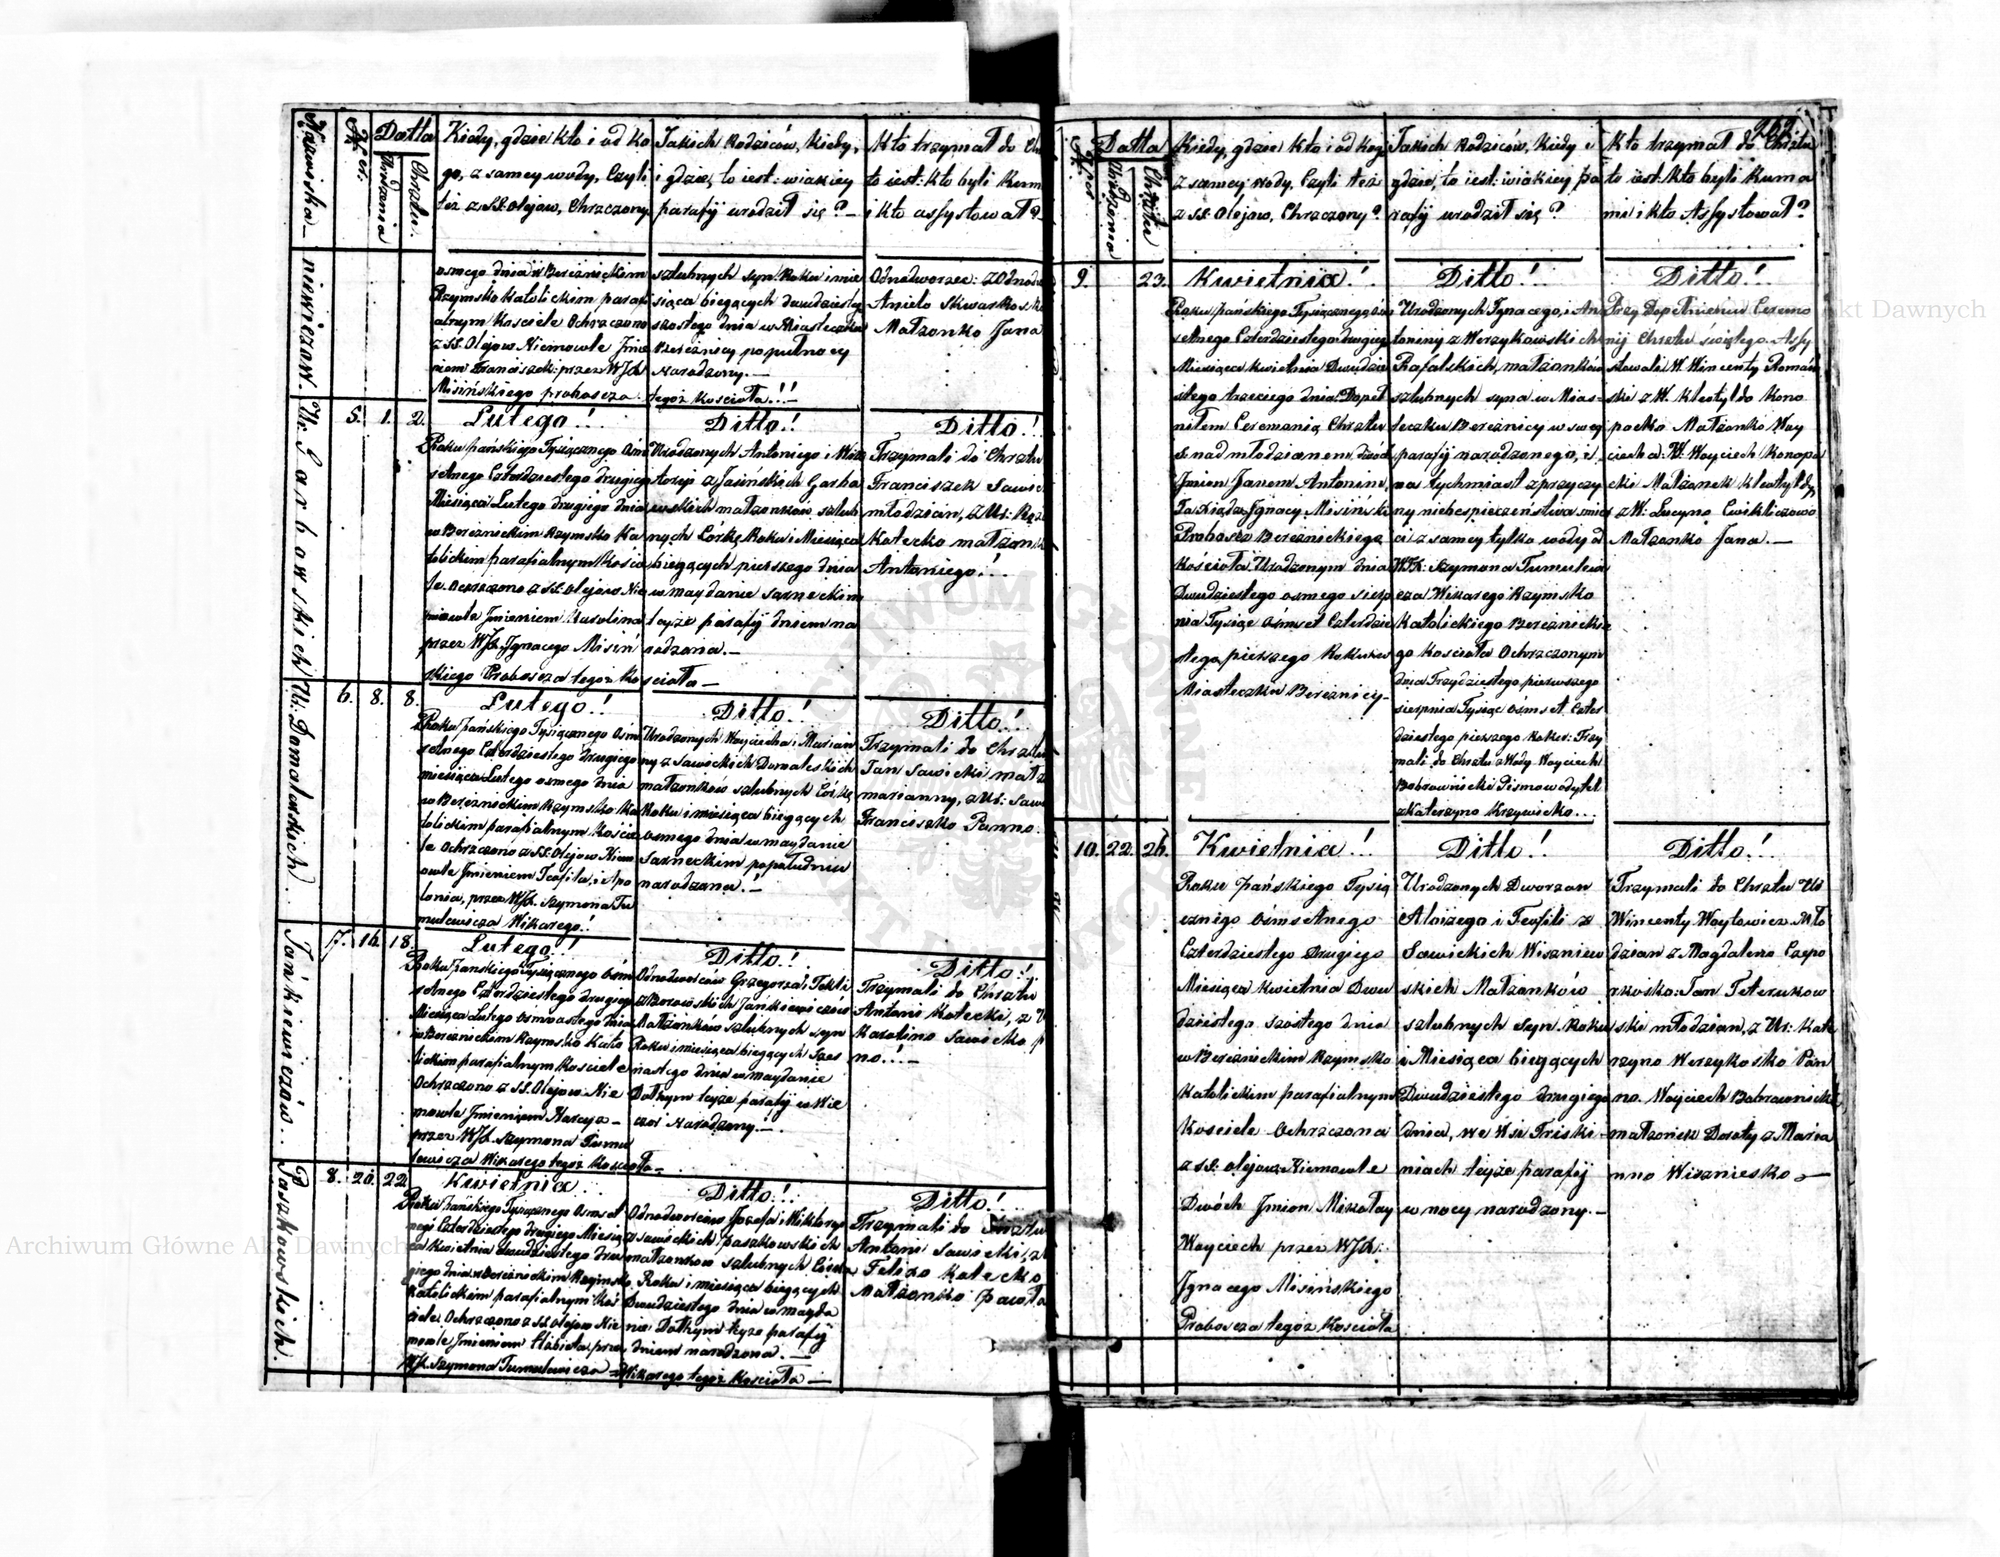 Nazwiska
Datta
Urodzenia
Chrztu
Kiedy, gdzie kto i od ko
go, z samey wody, Czyli
też z SS. Olejow, Chrzczony
Jakich Rodziców, Kiedy,
i gdzie, to iest: w iakiey
parafij urodził się? —
Kto trzymał do
to iest: kto byli Kum
i kto assystował?
osmego dnia w Bereznickim
Rzymsko Katolickim parafi
alnym Kosciele Ochrzczono
z SS. Olejow Niemowle Jmie
niem Franciszek: przez WJX
Misińskiego proboszcza
tegoż Kościoła!!!
szlubnych syn. Roku i mie
siąca bieżących dwudziesteg
szostego dnia w Miasteczku
Bereznicy popułnocy
Narodzony. —
Odnodworzec: z Odnodw
Anielo Skwarkosk
Małzonko Jana
5. 1. 2.
Ur. Garbawskich
Lutego!
Roku pańskiego Tysiącznego Osm
setnego Czterdziestego drugiego
Miesiąca Lutego drugiego dnia
w Bereznickim Rzymsko Ka
tolickim parafialnym Koscie
le Ochrzczono z SS. Olejow Nie
mowle Jmieniem Karolina
przez WJX. Jgnacego Misiń
skiego Proboszcza tegoż Kościoła —
Ditto!
Urodzonych Antoniego i Wik
toryi z Jasińskich Garba
wskich małzonków szlub
nych Córkę Roku i Miesiąca
bieżących pierszego dnia
w maydanie sarneckim
teyże parafij dniem na
rodzona. —
Ditto!
Trzymali do Chrztu
Franciszek Sawic
młodzian, z Ur:
Kotecko małzon
Antoniego!
6. 8. 8.
Ur. Domalewskich
Lutego!
Roku Pańskiego Tysiącznego Osm
setnego Czterdziestego drugiego
miesiąca Lutego osmego dnia
w Bereznickim Rzymsko Ka
tolickim parafialnym Koscie
le Ochrzczono z SS. Olejow Niem
owle Jmieniem Teofila, i Apo
lonia, przez WJX. Szymona Tu
mulewicza Wikarego!
Ditto!
Urodzonych Woyciecha i Marian
ny z Sawickich Domaleskich
małzonków szlubnych Córkę
Roku i miesiąca bieżących
osmego dnia w maydanie
Sarneckim popołudniu
narodzona. —
Ditto!
Trzymali do Chrztu
Jan Sawicki małz
marianny, z Ur: Saw
Franciszko Panno.
7. 16. 18.
Jańkiewiczów
Lutego!
Roku Pańskiego Tysiącznego Osm
setnego Czterdziestego drugiego
Miesiąca Lutego Osmnastego dnia
w Bereznickim Rzymsko Kato
lickim parafialnym Kosciele
Ochrzczono z SS. Olejow Nie
mowle Jmieniem Narcyz —
przez WJX. Szymona Tumu
lewicza Wikarego tegoż Kościoła —
Ditto!
Odnodworców Grzegorza i Tekli
z Borowskich Jańkiewiczów
Małzonków szlubnych syn
Roku i miesiąca bieżących Szes
nastego dnia w maydanie
Dołhym teyże parafij w Wie
czor Narodzony. —
Ditto!
Trzymali do Chrztu
Antoni Kotecki, z
Karolino Sawicko
no! —
8. 20. 22.
Paszkowskich.
Kwietnia
Roku Pańskiego Tysiącznego Osmset
nego Czterdziestego drugiego Miesią
ca Kwietnia dwudziestego dru
giego dnia w Bereznickim Rzymsko
Katolickim parafialnym Koś
ciele Ochrzczono z SS. Olejow Nie
mowle Jmieniem Elżbieta, przez
WJX. Szymona Tumulewicza Wikarego tegoż Kościoła —
Ditto!
Odnodworców Jozefa i Wiktoryi
z Sawickich paszkowskich
małzonkow szlubnych Córka
Roku i miesiąca bieżących
Dwudziestego dnia w mayda
nie Dołhym teyże parafij
dniem narodzona. —
Ditto!
Trzymali do Chrztu
Antoni Sawicki, z
Felixo Kotecko
Małzonko pawła
Datta
Urodzenia
Chrztu
Kiedy, gdzie kto i od kogo
z samey wody, Czyli też
z SS: Olejow, Chrzczony?
Jakich Rodziców, Kiedy i
gdzie, to iest: w iakiey pa
rafij urodził się?
Kto trzymał do Chrztu
to iest: kto byli Kuma
mi i kto Assystował?
9. 23.
Kwietnia!
Roku pańskiego Tysiącznego Osm
setnego Czterdziestego drugiego
Miesiąca Kwietnia Dwudzie
stego trzeciego dnia. Dopeł
niłem Ceremonią Chrztu
S. nad młodzianem dwóch
Jmion Janem Antonim,
Ja Xiądz Jgnacy Misiński
Proboszcz Bereznickiego
Kościoła. Urodzonym dnia
Dwudziestego osmego sierp
nia Tysiąc Osmset Czterdzie
stego pierszego Roku w
Miasteczku Bereznicy —
Ditto!
Urodzonych Jgnacego, i An
toniny z Werzykowskich
Rafalskich, małzonków
szlubnych syna w Mias
teczku Bereznicy w swey
parafij narodzonego, i
na tychmiast z przyczy
ny niebespieczeństwa śmier
ci z samey tylko wody od
WJX: Szymona Tumulewi
cza Wikarego Rzymsko
Katolickiego Bereznickie
go Kościoła Ochrzczonym
dnia Trzydziestego pierwszego
sierpnia Tysiąc osmset Czter
dziestego pierszego Roku: Trzy
mali do Chrztu z Wody Woyciech
Bobrownicki Pismowodytel
z Katerzyno Krzywicko...
Ditto!
Przy Dopełnieniu Ceremo
nij Chrztu świętego Assy
stowali W. Wincenty Román
ski z W. Kleotyldo Kono
packo Małzonko Woy
ciecha: W. Woyciech Konopa
cki Małzonek Kleotyldy
z W: Lucyno Cwikliczowo
Małzonko Jana. —
10. 22. 26.
Kwietnia!
Roku Pańskiego Tysią
cznego Osmsetnego
Czterdziestego Drugiego
Miesiąca Kwietnia Dwu
dziestego szostego dnia
w Bereznickim Rzymsko
Katolickim parafialnym
Kosciele Ochrzczona
z SS: Olejow Niemowle
Dwóch Jmion Mikołay
Woyciech przez WJX:
Jgnacego Misińskiego
Proboszcza tegoż Kościoła
Ditto!
Urodzonych Dworzan
Aloizego i Teofili z
Sawickich Wiszniew
skich Małzonków
szlubnych Syn. Roku
i Miesiąca bieżących
Dwudziestego drugiego
dnia, we Wsi Triski
niach teyże parafij
w nocy narodzony. —
Ditto!
Trzymali do Chrztu Ur
Wincenty Woytowicz Mło
dzian z Magdaleno Czepo
rkosko: Jan Teterukow
ski młodzian, z Ur: Kate
rzyno Werzykosko Pan
no. Woyciech Bobrownicki
małzonek Doroty z Maria
nno Wiszniesko —
Archiwum Główne Akt Dawnych
Akt Dawnych